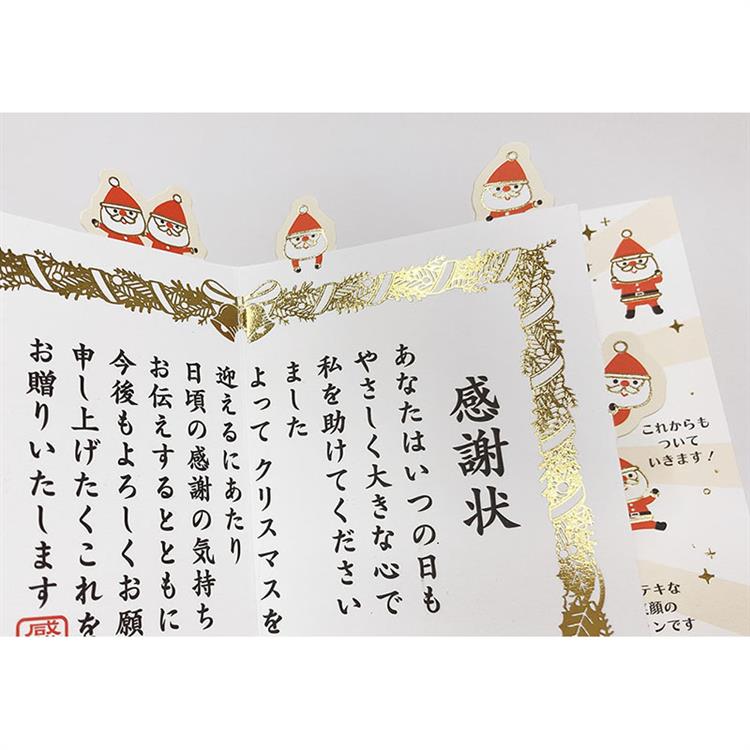 感謝状
あなたはいつの日も
やさしく大きな心で
私を助けてください
ました
よって クリスマスを
迎えるにあたり
日頃の感謝の気持ち
お伝えするとともに
今後もよろしくお願
申し上げたくこれを
お贈りいたします
感
これからも
ついて
いきます!
テキな
顔の
ンです